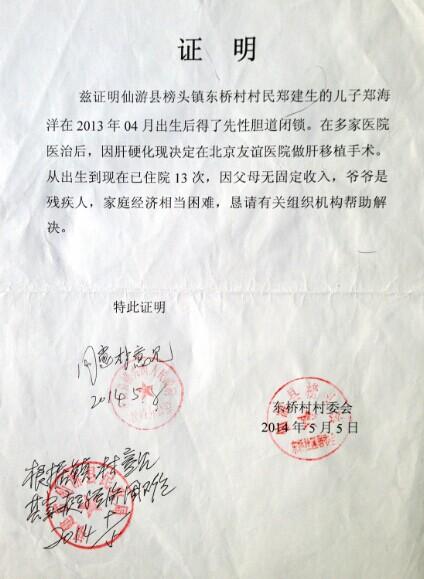 证 明
兹证明仙游县榜头镇东桥村村民郑建生的儿子郑海
洋在 2013 年 04 月出生后得了先性胆道闭锁。在多家医院
医治后，因肝硬化现决定在北京友谊医院做肝移植手术。
从出生到现在已住院 13 次，因父母无固定收入，爷爷是
残疾人，家庭经济相当困难，恳请有关组织机构帮助解
决。
特此证明
同意村意见
2014.5.8
东桥村村委会
2014 年 5 月 5 日
根据镇村意见
2014